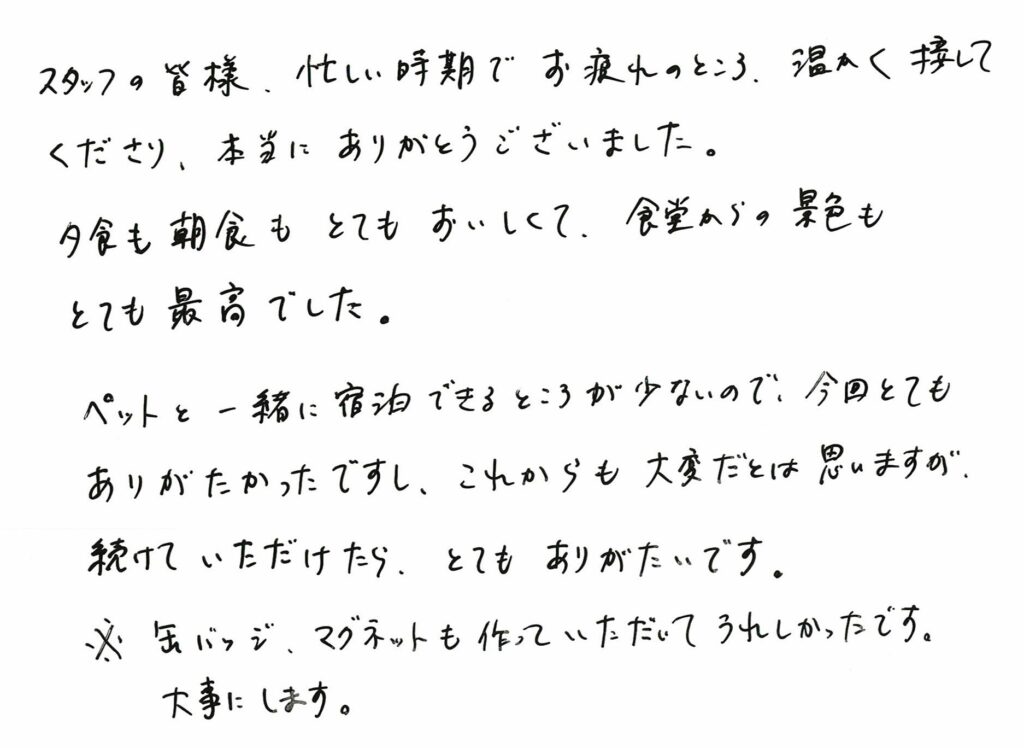 スタッフの皆様、忙しい時期でお疲れのところ、温かく接して
くださり、本当にありがとうございました。
夕食も朝食もとてもおいしくて、食堂からの景色も
とても最高でした。
ペットと一緒に宿泊できるところが少ないので、今回とても
ありがたかったですし、これからも大変だとは思いますが、
続けていただけたら、とてもありがたいです。
※ 缶バッジ、マグネットも作っていただいてうれしかったです。
大事にします。